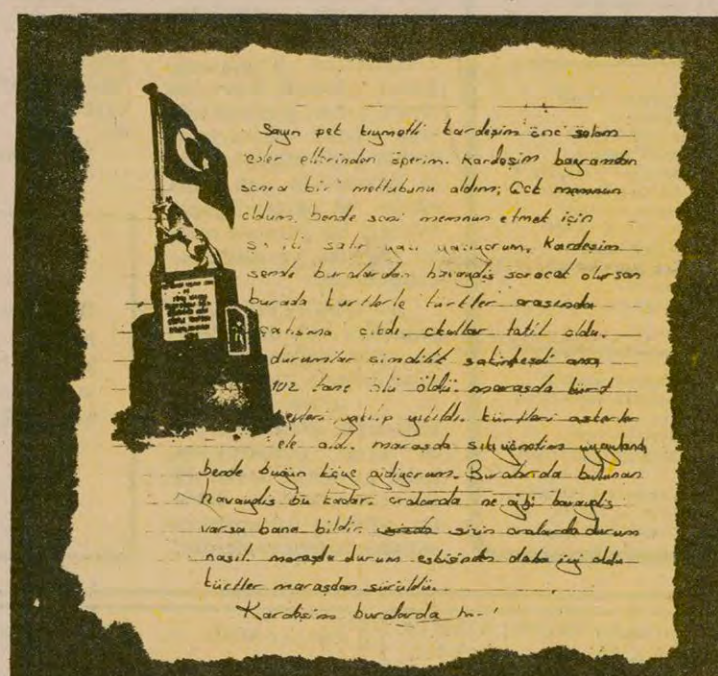 Sayın pek kıymetli kardeşim önc selam
eder ellerinden öperim. Kardeşim bayramdan
sonra bir mektubunu aldım; Çok memnun
oldum. bende seni memnun etmek için
iki satır yazı yazıyorum, Kardeşim
sende buralardan havaydis soracak olursan
burada kürtlerle türkler arasında
çatışma çıktı. okullar tatil oldu.
durumlar şimdilik sakinleşdi ama
102 tane ölü öldü. maraşda kürd
evleri yakılıp yıkıldı. kürtleri askerler
ele aldı. maraşda sıkıyönetim uygulandı
bende bugün köye gidiyorum. Buralarda bulunan
havaydis bu kadar. oralarda ne gibi havaydis
varsa bana bildir. sizin oralarda durum
nasıl. maraşda durum eskisinden daha iyi oldu
kürtler maraşdan sürüldü.
Kardeşim buralarda